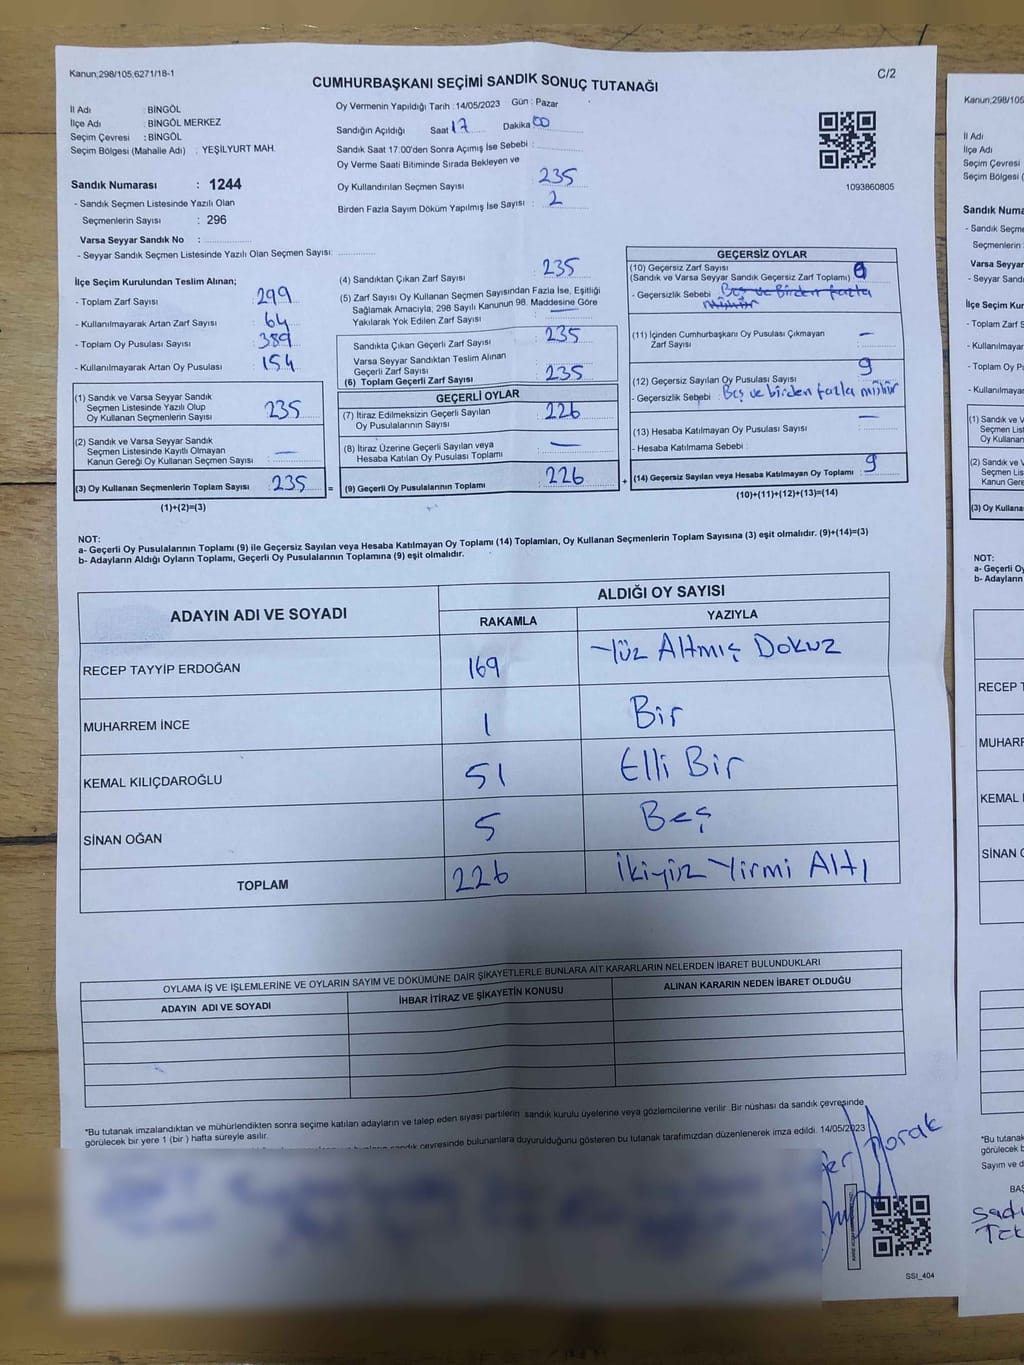 Kanun;298/105,6271/18-1
C/2
CUMHURBAŞKANI SEÇİMİ SANDIK SONUÇ TUTANAĞI
İl Adı : BİNGÖL
İlçe Adı : BİNGÖL MERKEZ
Seçim Çevresi : BİNGÖL
Seçim Bölgesi (Mahalle Adı) : YEŞİLYURT MAH.
Sandık Numarası : 1244
- Sandık Seçmen Listesinde Yazılı Olan
Seçmenlerin Sayısı : 296
Varsa Seyyar Sandık No :
- Seyyar Sandık Seçmen Listesinde Yazılı Olan Seçmen Sayısı:
Oy Vermenin Yapıldığı Tarih :14/05/2023 Gün : Pazar
Sandığın Açıldığı Saat 17 Dakika 00
Sandık Saat 17:00'den Sonra Açımış İse Sebebi :
Oy Verme Saati Bitiminde Sırada Bekleyen ve
Oy Kullandırılan Seçmen Sayısı 235
Birden Fazla Sayım Döküm Yapılmış İse Sayısı : 2
1093860805
İlçe Seçim Kurulundan Teslim Alınan;
- Toplam Zarf Sayısı 299
- Kullanılmayarak Artan Zarf Sayısı 64
- Toplam Oy Pusulası Sayısı 389
- Kullanılmayarak Artan Oy Pusulası 154
(1) Sandık ve Varsa Seyyar Sandık
Seçmen Listesinde Yazılı Olup
Oy Kullanan Seçmenlerin Sayısı 235
(2) Sandık ve Varsa Seyyar Sandık
Seçmen Listesinde Kayıtlı Olmayan
Kanun Gereği Oy Kullanan Seçmen Sayısı : —
(3) Oy Kullanan Seçmenlerin Toplam Sayısı : 235 =
(1)+(2)=(3)
(4) Sandıktan Çıkan Zarf Sayısı 235
(5) Zarf Sayısı Oy Kullanan Seçmen Sayısından Fazla İse, Eşitliği
Sağlamak Amacıyla; 298 Sayılı Kanunun 98. Maddesine Göre
Yakılarak Yok Edilen Zarf Sayısı —
Sandıkta Çıkan Geçerli Zarf Sayısı 235
Varsa Seyyar Sandıktan Teslim Alınan
Geçerli Zarf Sayısı
(6) Toplam Geçerli Zarf Sayısı 235
GEÇERLİ OYLAR
(7) İtiraz Edilmeksizin Geçerli Sayılan
Oy Pusulalarının Sayısı 226
(8) İtiraz Üzerine Geçerli Sayılan veya
Hesaba Katılan Oy Pusulası Toplamı —
(9) Geçerli Oy Pusulalarının Toplamı 226 +
GEÇERSİZ OYLAR
(10) Geçersiz Zarf Sayısı
(Sandık ve Varsa Seyyar Sandık Geçersiz Zarf Toplamı)
- Geçersizlik Sebebi : Boş ve Birden fazla
mühür
(11) İçinden Cumhurbaşkanı Oy Pusulası Çıkmayan
Zarf Sayısı —
(12) Geçersiz Sayılan Oy Pusulası Sayısı 9
- Geçersizlik Sebebi : Boş ve birden fazla mühür
(13) Hesaba Katılmayan Oy Pusulası Sayısı —
- Hesaba Katılmama Sebebi :
(14) Geçersiz Sayılan veya Hesaba Katılmayan Oy Toplamı : 9
(10)+(11)+(12)+(13)=(14)
NOT:
a- Geçerli Oy Pusulalarının Toplamı (9) ile Geçersiz Sayılan veya Hesaba Katılmayan Oy Toplamı (14) Toplamları, Oy Kullanan Seçmenlerin Toplam Sayısına (3) eşit olmalıdır. (9)+(14)=(3)
b- Adayların Aldığı Oyların Toplamı, Geçerli Oy Pusulalarının Toplamına (9) eşit olmalıdır.
ADAYIN ADI VE SOYADI ALDIĞI OY SAYISI
RAKAMLA YAZIYLA
RECEP TAYYİP ERDOĞAN 169 Yüz Altmış Dokuz
MUHARREM İNCE 1 Bir
KEMAL KILIÇDAROĞLU 51 Elli Bir
SİNAN OĞAN 5 Beş
TOPLAM 226 İkiyüz Yirmi Altı
OYLAMA İŞ VE İŞLEMLERİNE VE OYLARIN SAYIM VE DÖKÜMÜNE DAİR ŞİKAYETLERLE BUNLARA AİT KARARLARIN NELERDEN İBARET BULUNDUKLARI
ADAYIN ADI VE SOYADI İHBAR İTİRAZ VE ŞİKAYETİN KONUSU ALINAN KARARIN NEDEN İBARET OLDUĞU
*Bu tutanak imzalandıktan ve mühürlendikten sonra seçime katılan adayların ve talep eden siyasi partilerin sandık kurulu üyelerine veya gözlemcilerine verilir. Bir nüshası da sandık çevresinde
görülecek bir yere 1 (bir ) hafta süreyle asılır.
sandık çevresinde bulunanlara duyurulduğunu gösteren bu tutanak tarafımızdan düzenlenerek imza edildi. 14/05/2023
SSI_404
Kanun;298/105
İl Adı
İlçe Adı
Seçim Çevresi
Seçim Bölgesi (
Sandık Numa
- Sandık Seçme
Seçmenlerin
Varsa Seyyar
- Seyyar Sandı
İlçe Seçim Kur
- Toplam Zarf
- Kullanılmayar
- Toplam Oy P
- Kullanılmaya
(1) Sandık ve V
Seçmen List
Oy Kullanan
(2) Sandık ve V
Seçmen Lis
Kanun Gere
(3) Oy Kullana
NOT:
a- Geçerli Oy
b- Adayların
RECEP T
MUHARR
KEMAL
SİNAN O
*Bu tutanak
görülecek b
Sayım ve d